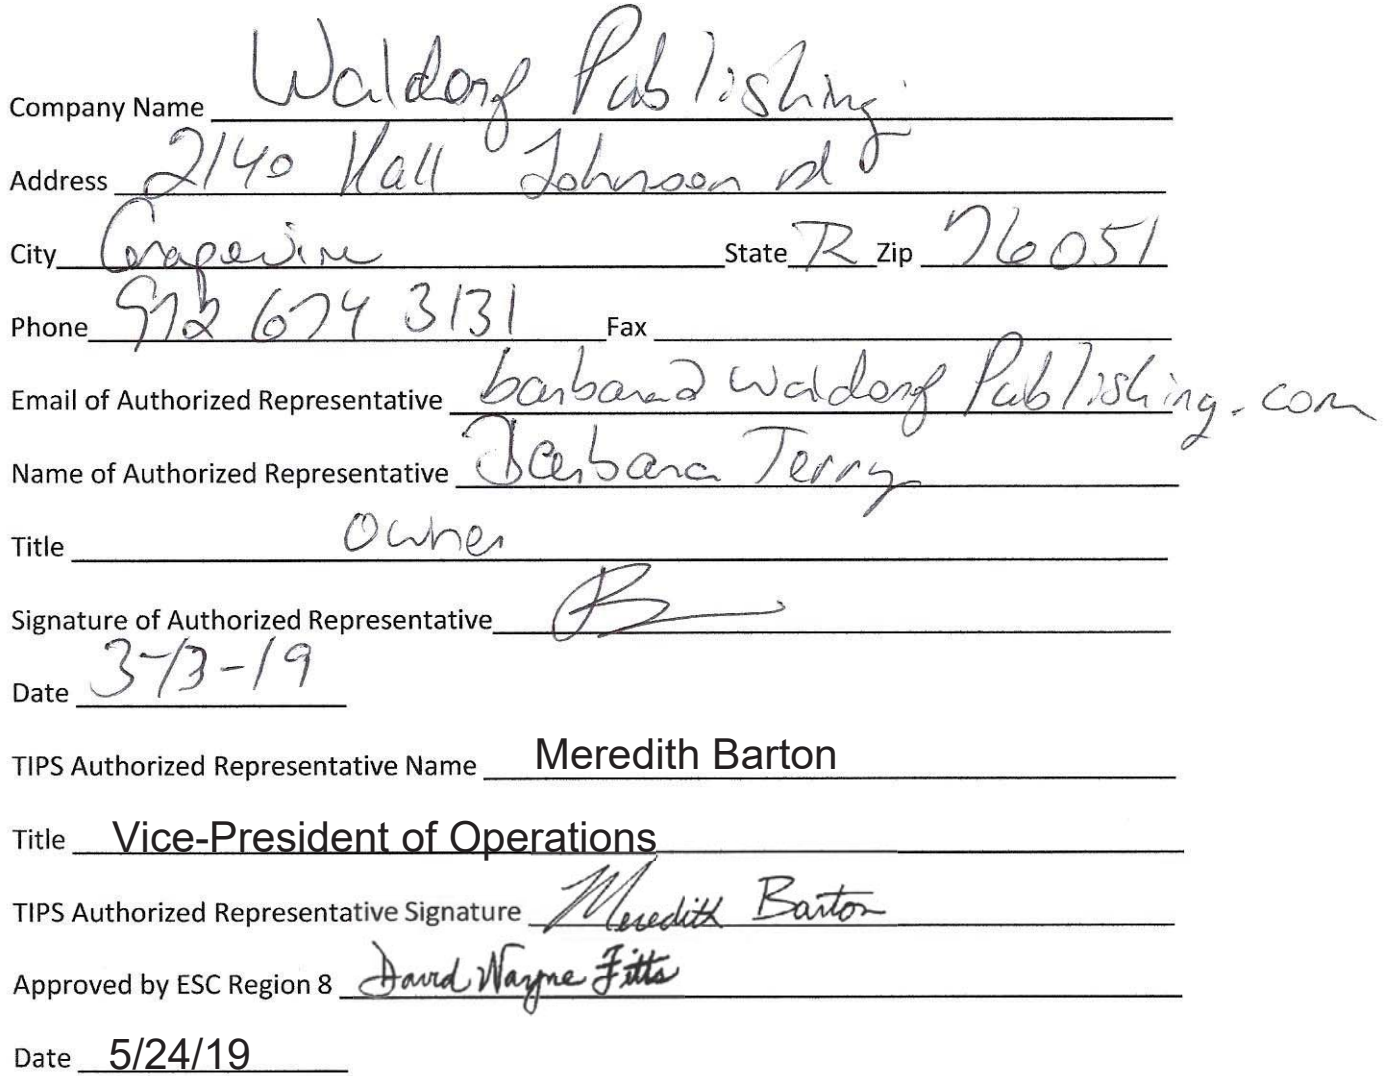 Company Name Waldorf Publishing
Address 2140 Hall Johnson rd
City Grapevine State TX Zip 76051
Phone 972 674 3131 Fax
Email of Authorized Representative barbara@WaldorfPublishing.com
Name of Authorized Representative Barbara Terry
Title Owner
Signature of Authorized Representative
Date 3-13-19
TIPS Authorized Representative Name Meredith Barton
Title Vice-President of Operations
TIPS Authorized Representative Signature Meredith Barton
Approved by ESC Region 8 David Wayne Fitts
Date 5/24/19